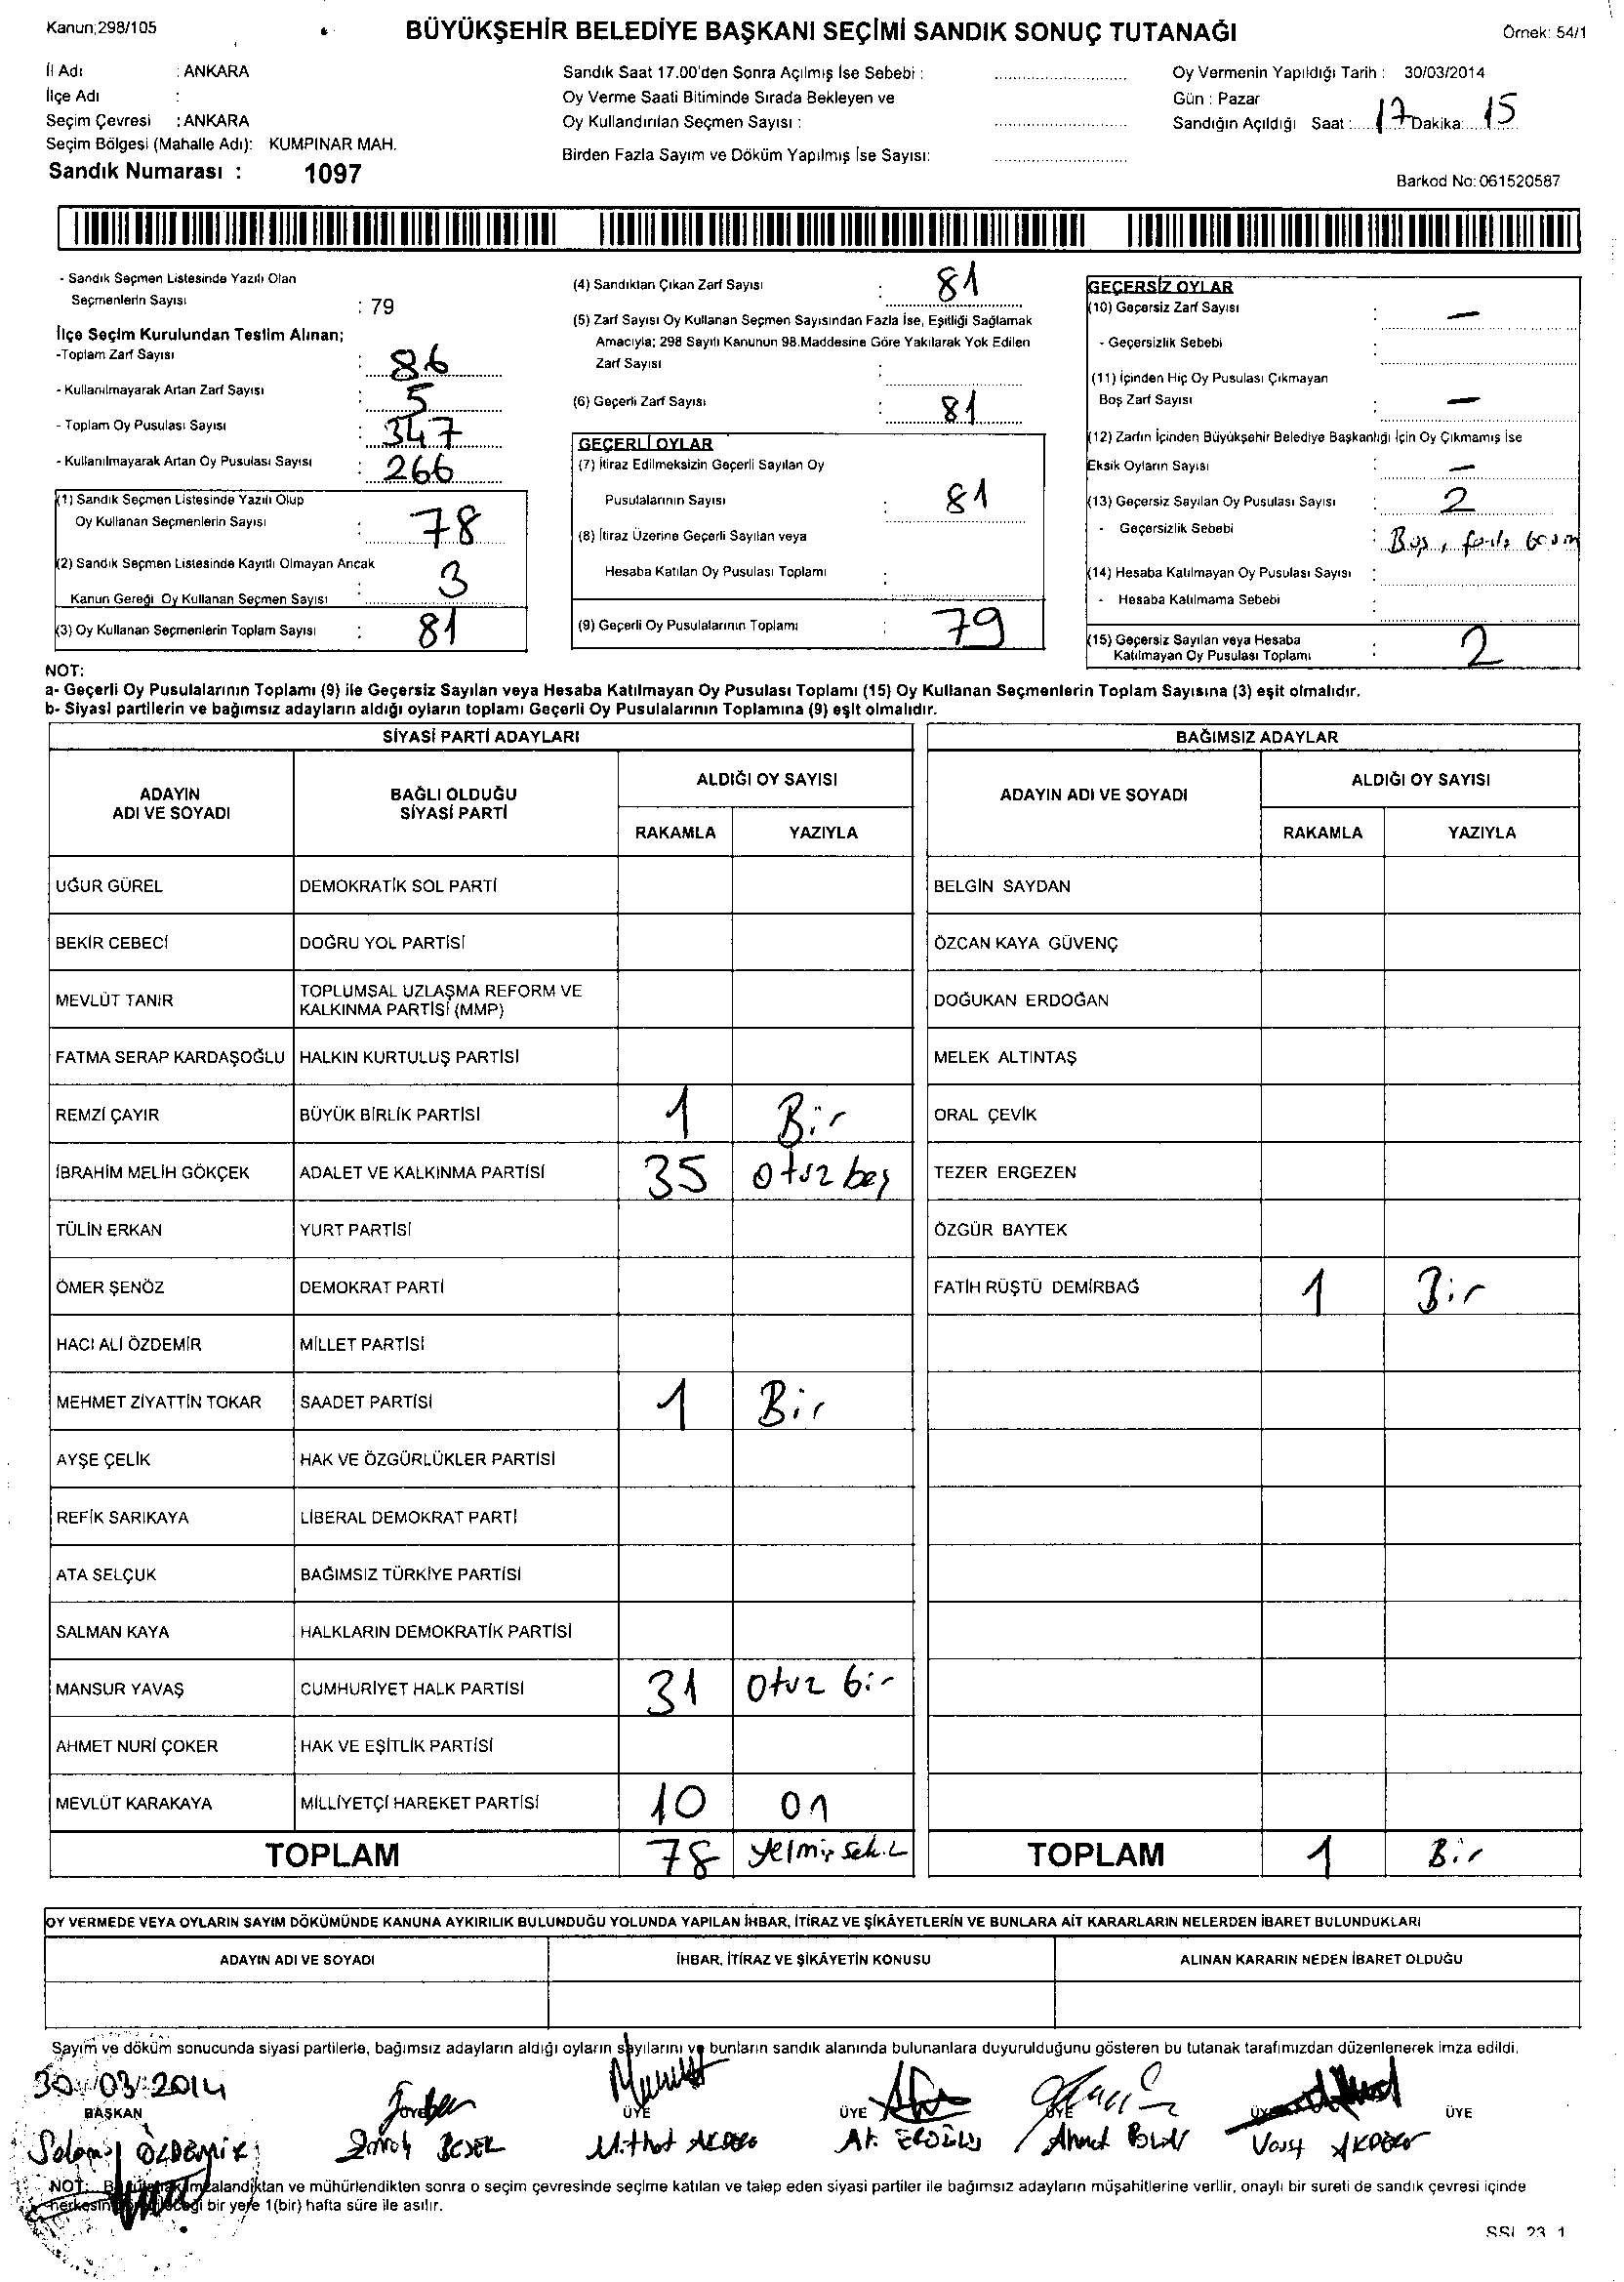 Kanun;298/105
BÜYÜKŞEHİR BELEDİYE BAŞKANI SEÇİMİ SANDIK SONUÇ TUTANAĞI
Örnek: 54/1
İl Adı : ANKARA
İlçe Adı :
Seçim Çevresi : ANKARA
Seçim Bölgesi (Mahalle Adı): KUMPINAR MAH.
Sandık Numarası : 1097
Sandık Saat 17.00'den Sonra Açılmış İse Sebebi :
Oy Verme Saati Bitiminde Sırada Bekleyen ve
Oy Kullandırılan Seçmen Sayısı :
Birden Fazla Sayım ve Döküm Yapılmış İse Sayısı:
Oy Vermenin Yapıldığı Tarih : 30/03/2014
Gün : Pazar
Sandığın Açıldığı Saat : 17 Dakika: 15
Barkod No: 061520587
- Sandık Seçmen Listesinde Yazılı Olan
Seçmenlerin Sayısı : 79
İlçe Seçim Kurulundan Teslim Alınan;
-Toplam Zarf Sayısı : 86
- Kullanılmayarak Artan Zarf Sayısı : 5
- Toplam Oy Pusulası Sayısı : 347
- Kullanılmayarak Artan Oy Pusulası Sayısı : 266
(1) Sandık Seçmen Listesinde Yazılı Olup
Oy Kullanan Seçmenlerin Sayısı : 78
(2) Sandık Seçmen Listesinde Kayıtlı Olmayan Ancak
Kanun Gereği Oy Kullanan Seçmen Sayısı : 3
(3) Oy Kullanan Seçmenlerin Toplam Sayısı : 81
(4) Sandıktan Çıkan Zarf Sayısı : 81
(5) Zarf Sayısı Oy Kullanan Seçmen Sayısından Fazla İse, Eşitliği Sağlamak
Amacıyla; 298 Sayılı Kanunun 98.Maddesine Göre Yakılarak Yok Edilen
Zarf Sayısı :
(6) Geçerli Zarf Sayısı : 81
GEÇERLİ OYLAR
(7) İtiraz Edilmeksizin Geçerli Sayılan Oy
Pusulalarının Sayısı : 81
(8) İtiraz Üzerine Geçerli Sayılan veya
Hesaba Katılan Oy Pusulası Toplamı :
(9) Geçerli Oy Pusulalarının Toplamı : 79
GEÇERSİZ OYLAR
(10) Geçersiz Zarf Sayısı : —
- Geçersizlik Sebebi :
(11) İçinden Hiç Oy Pusulası Çıkmayan
Boş Zarf Sayısı : —
(12) Zarfın İçinden Büyükşehir Belediye Başkanlığı İçin Oy Çıkmamış İse
Eksik Oyların Sayısı : —
(13) Geçersiz Sayılan Oy Pusulası Sayısı : 2
- Geçersizlik Sebebi : Boş,
(14) Hesaba Katılmayan Oy Pusulası Sayısı :
- Hesaba Katılmama Sebebi :
(15) Geçersiz Sayılan veya Hesaba
Katılmayan Oy Pusulası Toplamı : 2
NOT:
a- Geçerli Oy Pusulalarının Toplamı (9) ile Geçersiz Sayılan veya Hesaba Katılmayan Oy Pusulası Toplamı (15) Oy Kullanan Seçmenlerin Toplam Sayısına (3) eşit olmalıdır.
b- Siyasi partilerin ve bağımsız adayların aldığı oyların toplamı Geçerli Oy Pusulalarının Toplamına (9) eşit olmalıdır.
SİYASİ PARTİ ADAYLARI
ADAYIN ADI VE SOYADI BAĞLI OLDUĞU SİYASİ PARTİ ALDIĞI OY SAYISI
RAKAMLA YAZIYLA
UĞUR GÜREL DEMOKRATİK SOL PARTİ
BEKİR CEBECİ DOĞRU YOL PARTİSİ
MEVLÜT TANIR TOPLUMSAL UZLAŞMA REFORM VE KALKINMA PARTİSİ (MMP)
FATMA SERAP KARDAŞOĞLU HALKIN KURTULUŞ PARTİSİ
REMZİ ÇAYIR BÜYÜK BİRLİK PARTİSİ 1 Bir
İBRAHİM MELİH GÖKÇEK ADALET VE KALKINMA PARTİSİ 35 otuz beş
TÜLİN ERKAN YURT PARTİSİ
ÖMER ŞENÖZ DEMOKRAT PARTİ
HACI ALİ ÖZDEMİR MİLLET PARTİSİ
MEHMET ZİYATTİN TOKAR SAADET PARTİSİ 1 Bir
AYŞE ÇELİK HAK VE ÖZGÜRLÜKLER PARTİSİ
REFİK SARIKAYA LİBERAL DEMOKRAT PARTİ
ATA SELÇUK BAĞIMSIZ TÜRKİYE PARTİSİ
SALMAN KAYA HALKLARIN DEMOKRATİK PARTİSİ
MANSUR YAVAŞ CUMHURİYET HALK PARTİSİ 31 Otuz bir
AHMET NURİ ÇOKER HAK VE EŞİTLİK PARTİSİ
MEVLÜT KARAKAYA MİLLİYETÇİ HAREKET PARTİSİ 10 on
TOPLAM 78 yetmiş sekiz
BAĞIMSIZ ADAYLAR
ADAYIN ADI VE SOYADI ALDIĞI OY SAYISI
RAKAMLA YAZIYLA
BELGİN SAYDAN
ÖZCAN KAYA GÜVENÇ
DOĞUKAN ERDOĞAN
MELEK ALTINTAŞ
ORAL ÇEVİK
TEZER ERGEZEN
ÖZGÜR BAYTEK
FATİH RÜŞTÜ DEMİRBAĞ 1 Bir
TOPLAM 1 Bir
OY VERMEDE VEYA OYLARIN SAYIM DÖKÜMÜNDE KANUNA AYKIRILIK BULUNDUĞU YOLUNDA YAPILAN İHBAR, İTİRAZ VE ŞİKÂYETLERİN VE BUNLARA AİT KARARLARIN NELERDEN İBARET BULUNDUKLARI
ADAYIN ADI VE SOYADI İHBAR, İTİRAZ VE ŞİKÂYETİN KONUSU ALINAN KARARIN NEDEN İBARET OLDUĞU
Sayım ve döküm sonucunda siyasi partilerle, bağımsız adayların aldığı oyların sayılarını ve bunların sandık alanında bulunanlara duyurulduğunu gösteren bu tutanak tarafımızdan düzenlenerek imza edildi.
30/03/2014
BAŞKAN ÜYE ÜYE ÜYE ÜYE ÜYE ÜYE
ÖZDEMİR Mithat Ahmet
NOT: Bu tutanak imzalandıktan ve mühürlendikten sonra o seçim çevresinde seçime katılan ve talep eden siyasi partiler ile bağımsız adayların müşahitlerine verilir, onaylı bir sureti de sandık çevresi içinde
herkesin görebileceği bir yere 1(bir) hafta süre ile asılır.